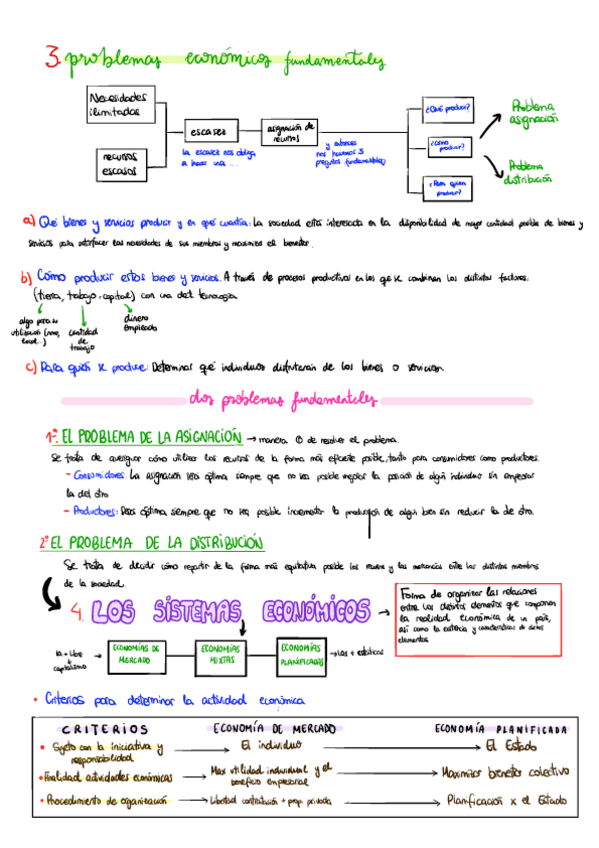 3. problemas económicos fundamentales
Necesidades
ilimitadas
recursos
escasos
escasez
la escasez nos obliga
a hacer una ...
asignación de
recursos
y entonces
nos hacemos 3
preguntas fundamentales
¿Qué producir?
¿Cómo
producir?
¿Para quién
producir?
Problema
asignación
Problema
distribución
a) Qué bienes y servicios producir y en qué cuantía: La sociedad está interesada en la disponibilidad de mayor cantidad posible de bienes y
servicios para satisfacer las necesidades de sus miembros y maximizar el bienestar.
b) Cómo producir estos bienes y servicios. A través de procesos productivos en los que se combinan los distintos factores.
(tierra, trabajo, capital) con una det tecnología
algo para su
utilización (nave,
local...)
cantidad
de
trabajo
dinero
empleado
c) Para quién se produce: Determinar qué individuos disfrutarán de los bienes o servicios.
dos problemas fundamentales
1º. EL PROBLEMA DE LA ASIGNACIÓN → manera de resolver el problema.
Se trata de averiguar cómo utilizar los recursos de la forma más eficiente posible, tanto para consumidores como productores.
- Consumidores: La asignación será óptima siempre que no sea posible mejorar la posición de algún individuo sin empeorar
la del otro
- Productores: Será óptima siempre que no sea posible incrementar la producción de algún bien sin reducir la de otro.
2º EL PROBLEMA DE LA DISTRIBUCIÓN
Se trata de decidir cómo repartir de la forma más equitativa posible los recursos y las mercancías entre los distintos miembros
de la sociedad.
4. LOS SISTEMAS ECONÓMICOS →
Forma de organizar las relaciones
entre los distintos elementos que componen
la realidad económica de un país,
así como la existencia y características de dichos
elementos
la + libre
capitalismo
ECONOMÍAS DE
MERCADO
ECONOMÍAS
MIXTAS
ECONOMÍAS
PLANIFICADAS
→ las + estáticas
• Criterios para determinar la actividad económica
CRITERIOS ECONOMÍA DE MERCADO ECONOMÍA PLANIFICADA
• Sujeto con la iniciativa y
responsabilidad → El individuo → El Estado
• Finalidad actividades económicas → Max utilidad individual y el
beneficio empresarial → Maximizar bienestar colectivo
• Procedimiento de organización → Libertad contratación + prop. privada → Planificación x el Estado